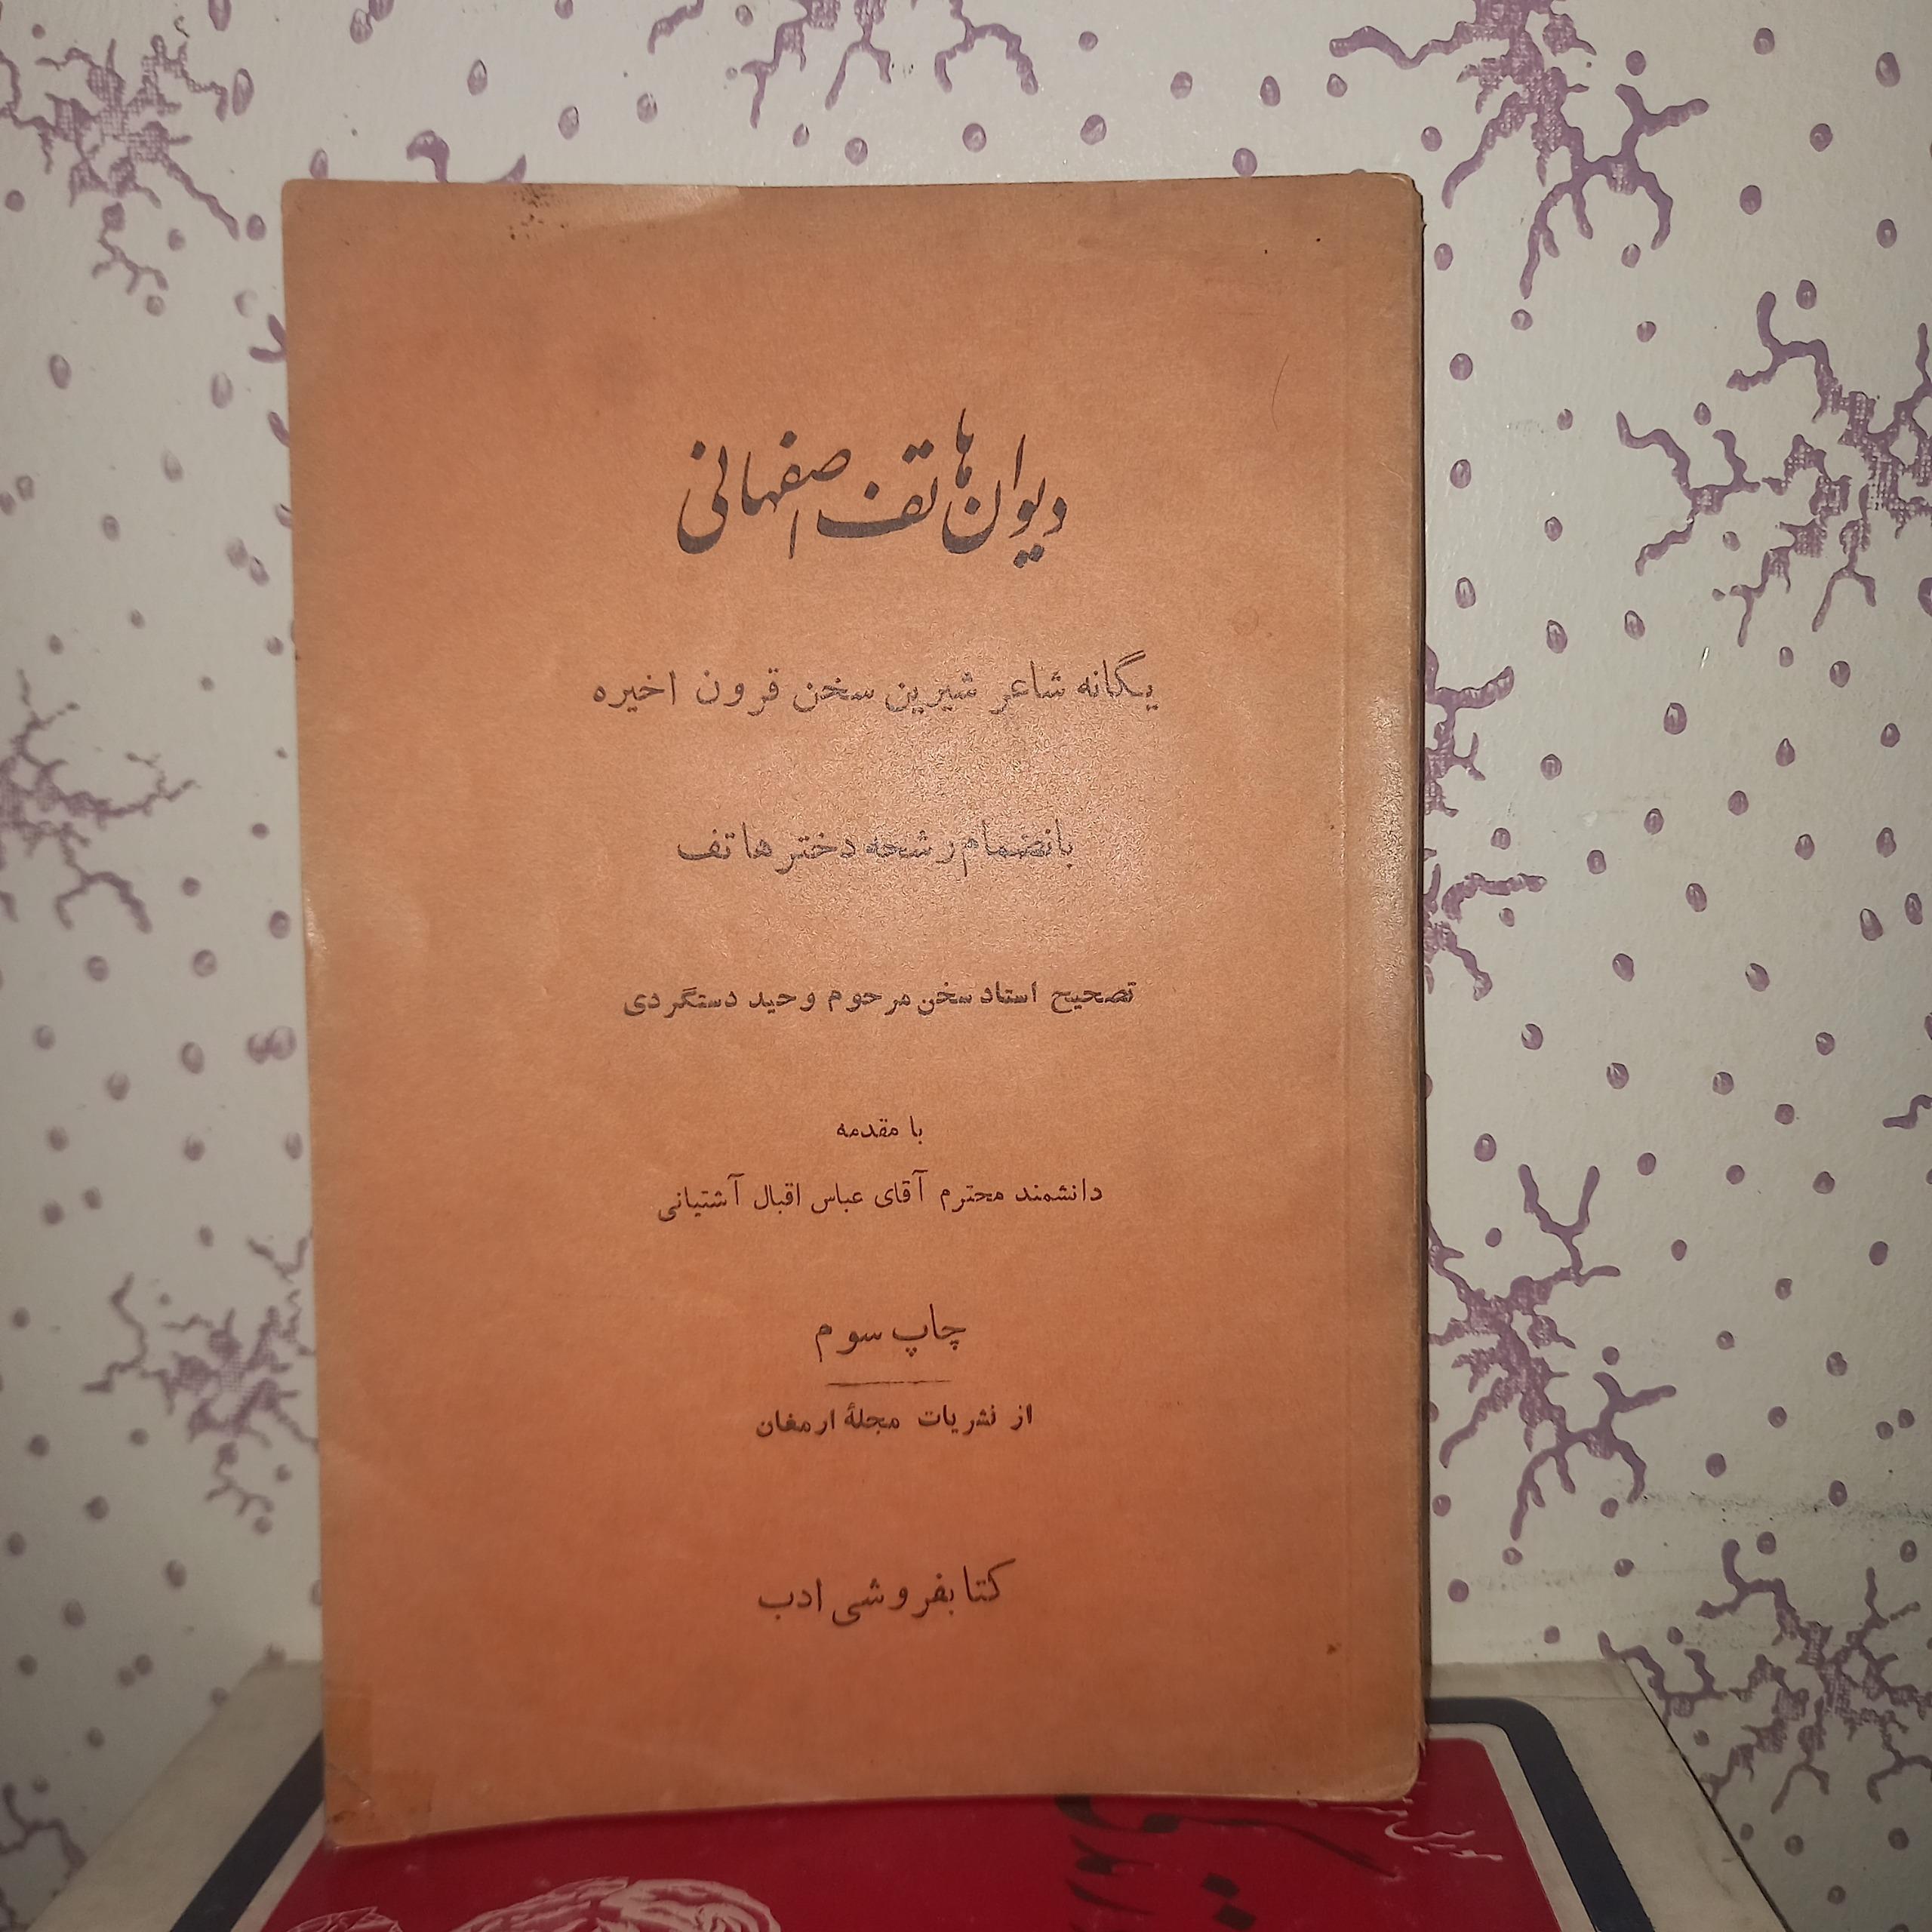 دیوان هاتف اصفهانی
یگانه شاعر شیرین سخن قرون اخیره
بانضمام رشحه دختر هاتف
تصحیح استاد سخن مرحوم وحید دستگردی
با مقدمه
دانشمند محترم آقای عباس اقبال آشتیانی
چاپ سوم
از نشریات مجلهٔ ارمغان
کتابفروشی ادب